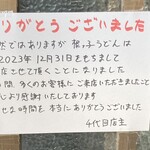 りがとうございました
然ではありますが 張ふうどんは
2023年12月31日をもちまして
店させて頂くことになりました
年間 多くのお客様にご来店いただきましたこと
心より感謝いたしております
せな時間を本当にありがとうございました
千代田店主